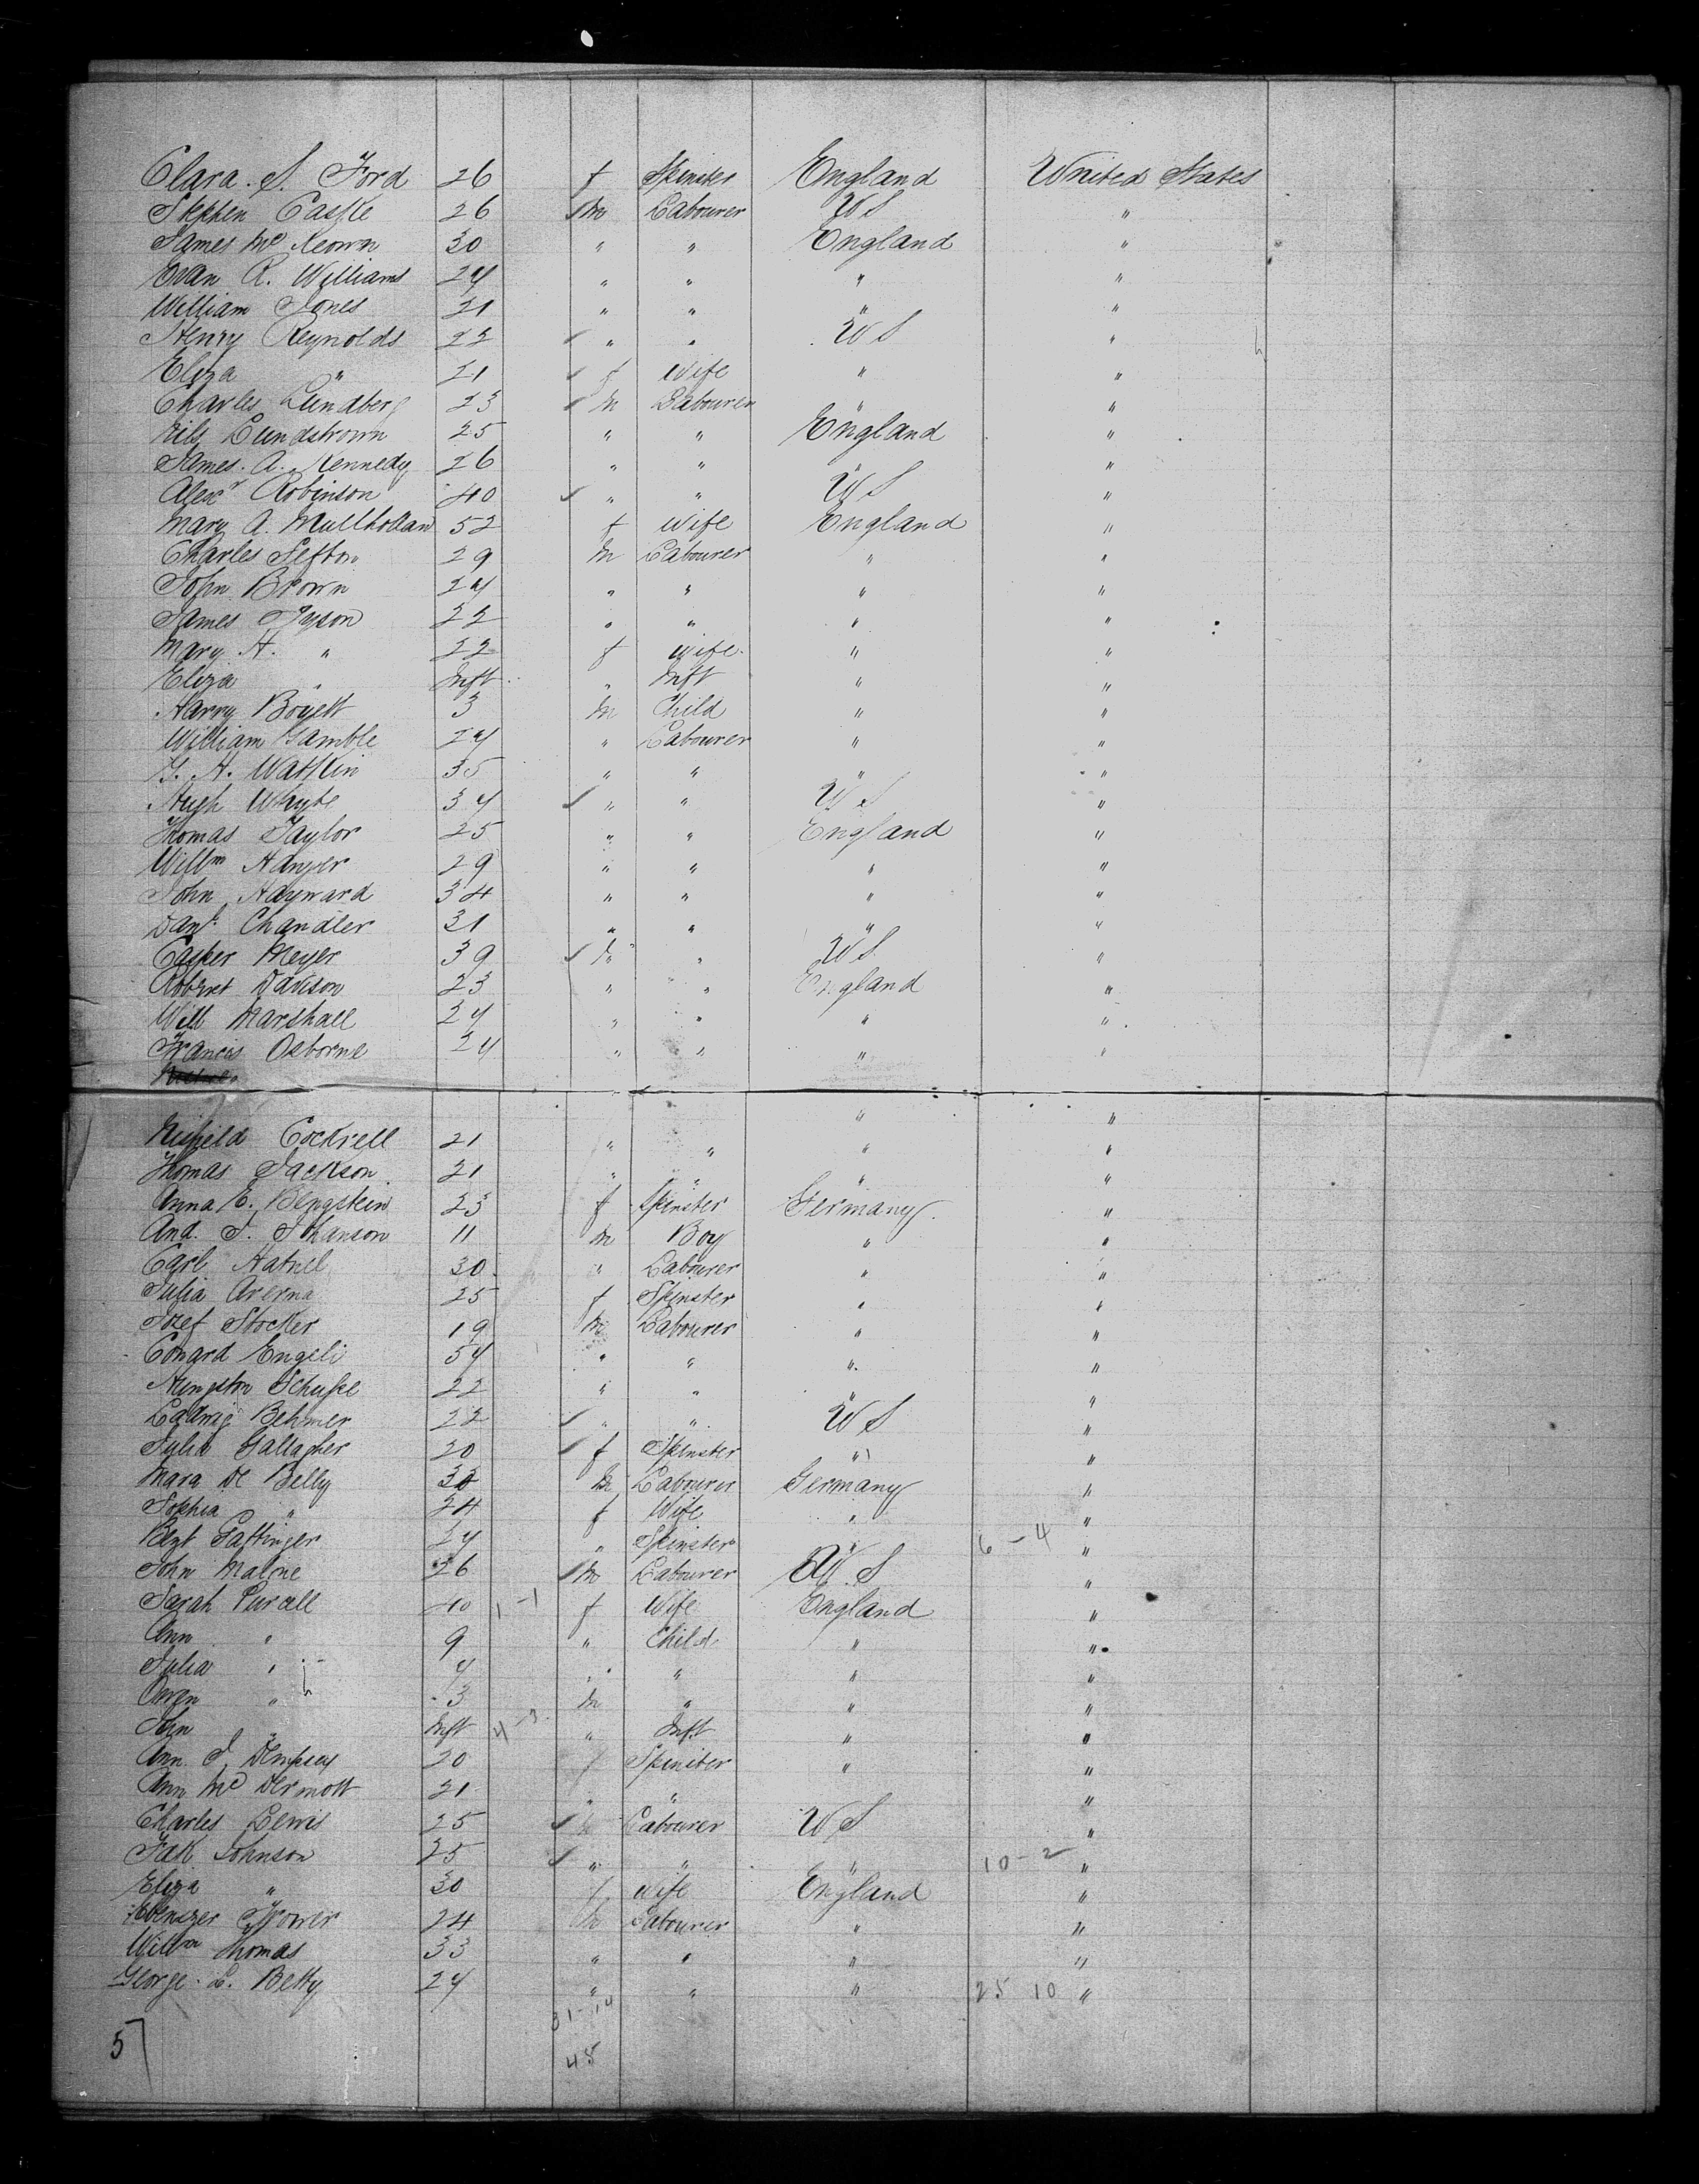 Clara. S. Ford 26 f Spinster England United States
Stephen Castle 26 m Labourer U S "
James Mc Keown 30 " " England "
Evan R. Williams 24 " " " "
William Jones 21 " " " "
Henry Reynolds 22 " " U S "
Eliza " 21 f Wife " "
Charles Lundberg 23 m Labourer " "
Nils Lundstrown 25 " " England "
James. A. Kennedy 26 " " " "
Alexr Robinson 40 " " U S "
Mary A. Mullhollan 52 f Wife England "
Charles Sefton 29 m Labourer " "
John Brown 24 " " " "
James Tyson 22 " " " "
Mary A. " 22 f Wife " "
Eliza " Inft " Inft " "
Harry Boyett 3 m Child " "
William Gamble 24 " Labourer " "
G. A. Watkin 35 " " " "
Hugh Whyte 34 " " U S "
Thomas Taylor 25 " " England "
Willm Hanger 29 " " " "
John Hayward 34 " " " "
Danl Chandler 31 " " " "
Casper Meyer 39 m " U S "
Robert Davison 23 " " England "
Will Marshall 24 " " " "
Francis Osborne 24 " " " "
" "
Cockrell 21 " " " "
Thomas Jackson 21 " " " "
Anna E. Bengstein 23 f Spinster Germany "
And. J. Johanson 11 m Boy " "
Carl 30 " Labourer " "
Julia 25 f Spinster " "
Josef Stocker 19 m Labourer " "
Conard Engeli 54 " " " "
22 " " " "
Ladwig Behmer 22 " " U S "
Julia Gallagher 20 f Spinster " "
Mara De Belly 3 m Labourer Germany "
Sophia " 24 f Wife " "
Gattinger 24 " Spinster " 6-4 "
John Malone 36 m Labourer U S "
Sarah Purcell 40 1-1 f Wife England "
Ann " 9 " Child " "
Julia " 4 " " " "
Owen " 3 m " " "
John Inft 4-3 " Inft " "
Ann. J. Dempsey 20 f Spinster " "
Ann Mc Dermott 21 " " " "
Charles Lewis 25 m Labourer U S "
Johnson 25 " " " 10-2 "
Eliza " 30 f Wife England "
Ebenezer 24 m Labourer " "
Willm Thomas 33 " " " "
George. L. Betty 24 " " " 25 10 "
31-14
5
48